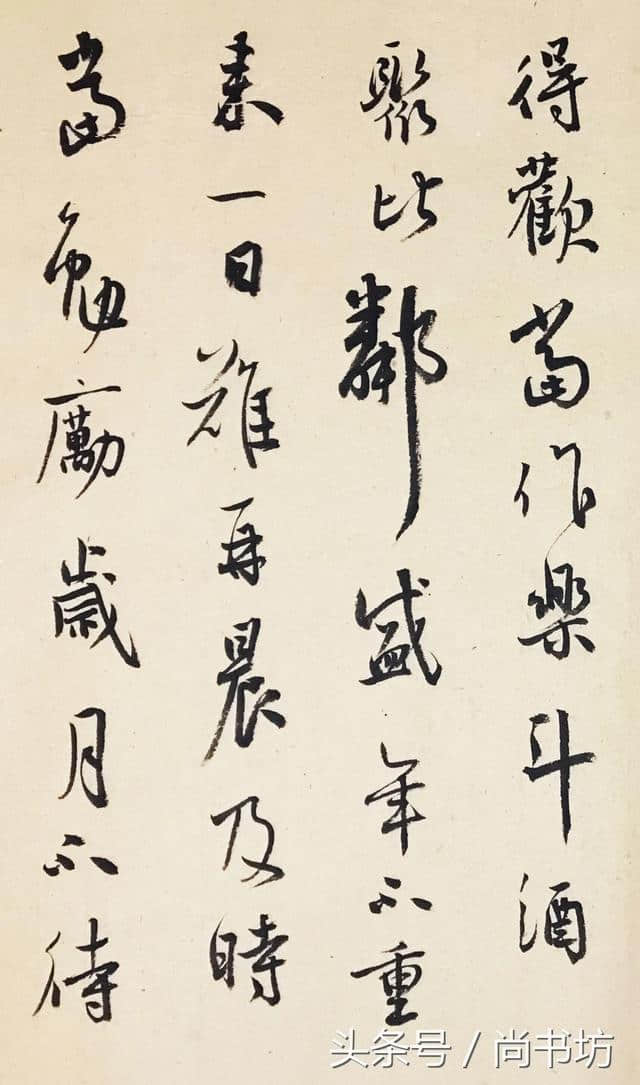 得歡當作樂斗酒
聚比鄰盛年不重
来一日難再晨及時
當勉勵歲月不待
头条号 / 尚书坊